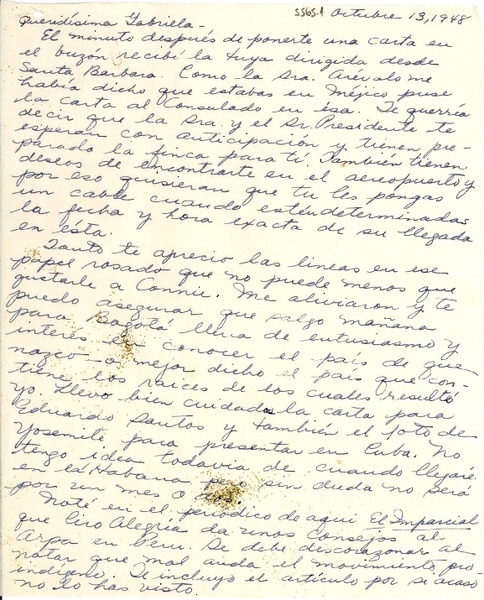 5565.1 Octubre 13, 1948
Queridísima Gabriela -
El minuto después de ponerte una carta en
el buzón recibí la tuya dirigida desde
Santa Barbara. Como la Sra. Arévalo me
había dicho que estabas en Méjico puse
la carta al Consulado en esa. Te querría
decir que la Sra. y el Sr. Presidente te
esperan con anticipación y tienen pre-
parado la finca para ti. También tienen
deseos de encontrarte en el aereopuerto y
por eso quisieran que tu les pongas
un cable cuando estén determinadas
la fecha y hora exacta de su llegada
en esta.
Tanto te aprecio las lineas en ese
papel rosado que no puede menos que
gustarle a Connie. Me aliviaron y te
puedo asegurar que salgo mañana
para Bogotá llena de entusiasmo y
interés en conocer el país de que
nazco o mejor dicho el país que con-
tiene los raices de los cuales resultó
yo. Llevo bien cuidado la carta para
Eduardo Santos y también el foto de
Yosemite para presentar en Cuba. No
tengo idea todavía de cuando llegaré
en la Habana pero sin duda no será
por un mes o
Noté en el periódico de aqui El Imparcial
que Ciro Alegría da unos consejos al
Arpa en Peru. Se debe descorazonar al
notar que mal anda el movimiento pro-
indigeno. Te incluyo el artículo por si acaso
no lo has visto.